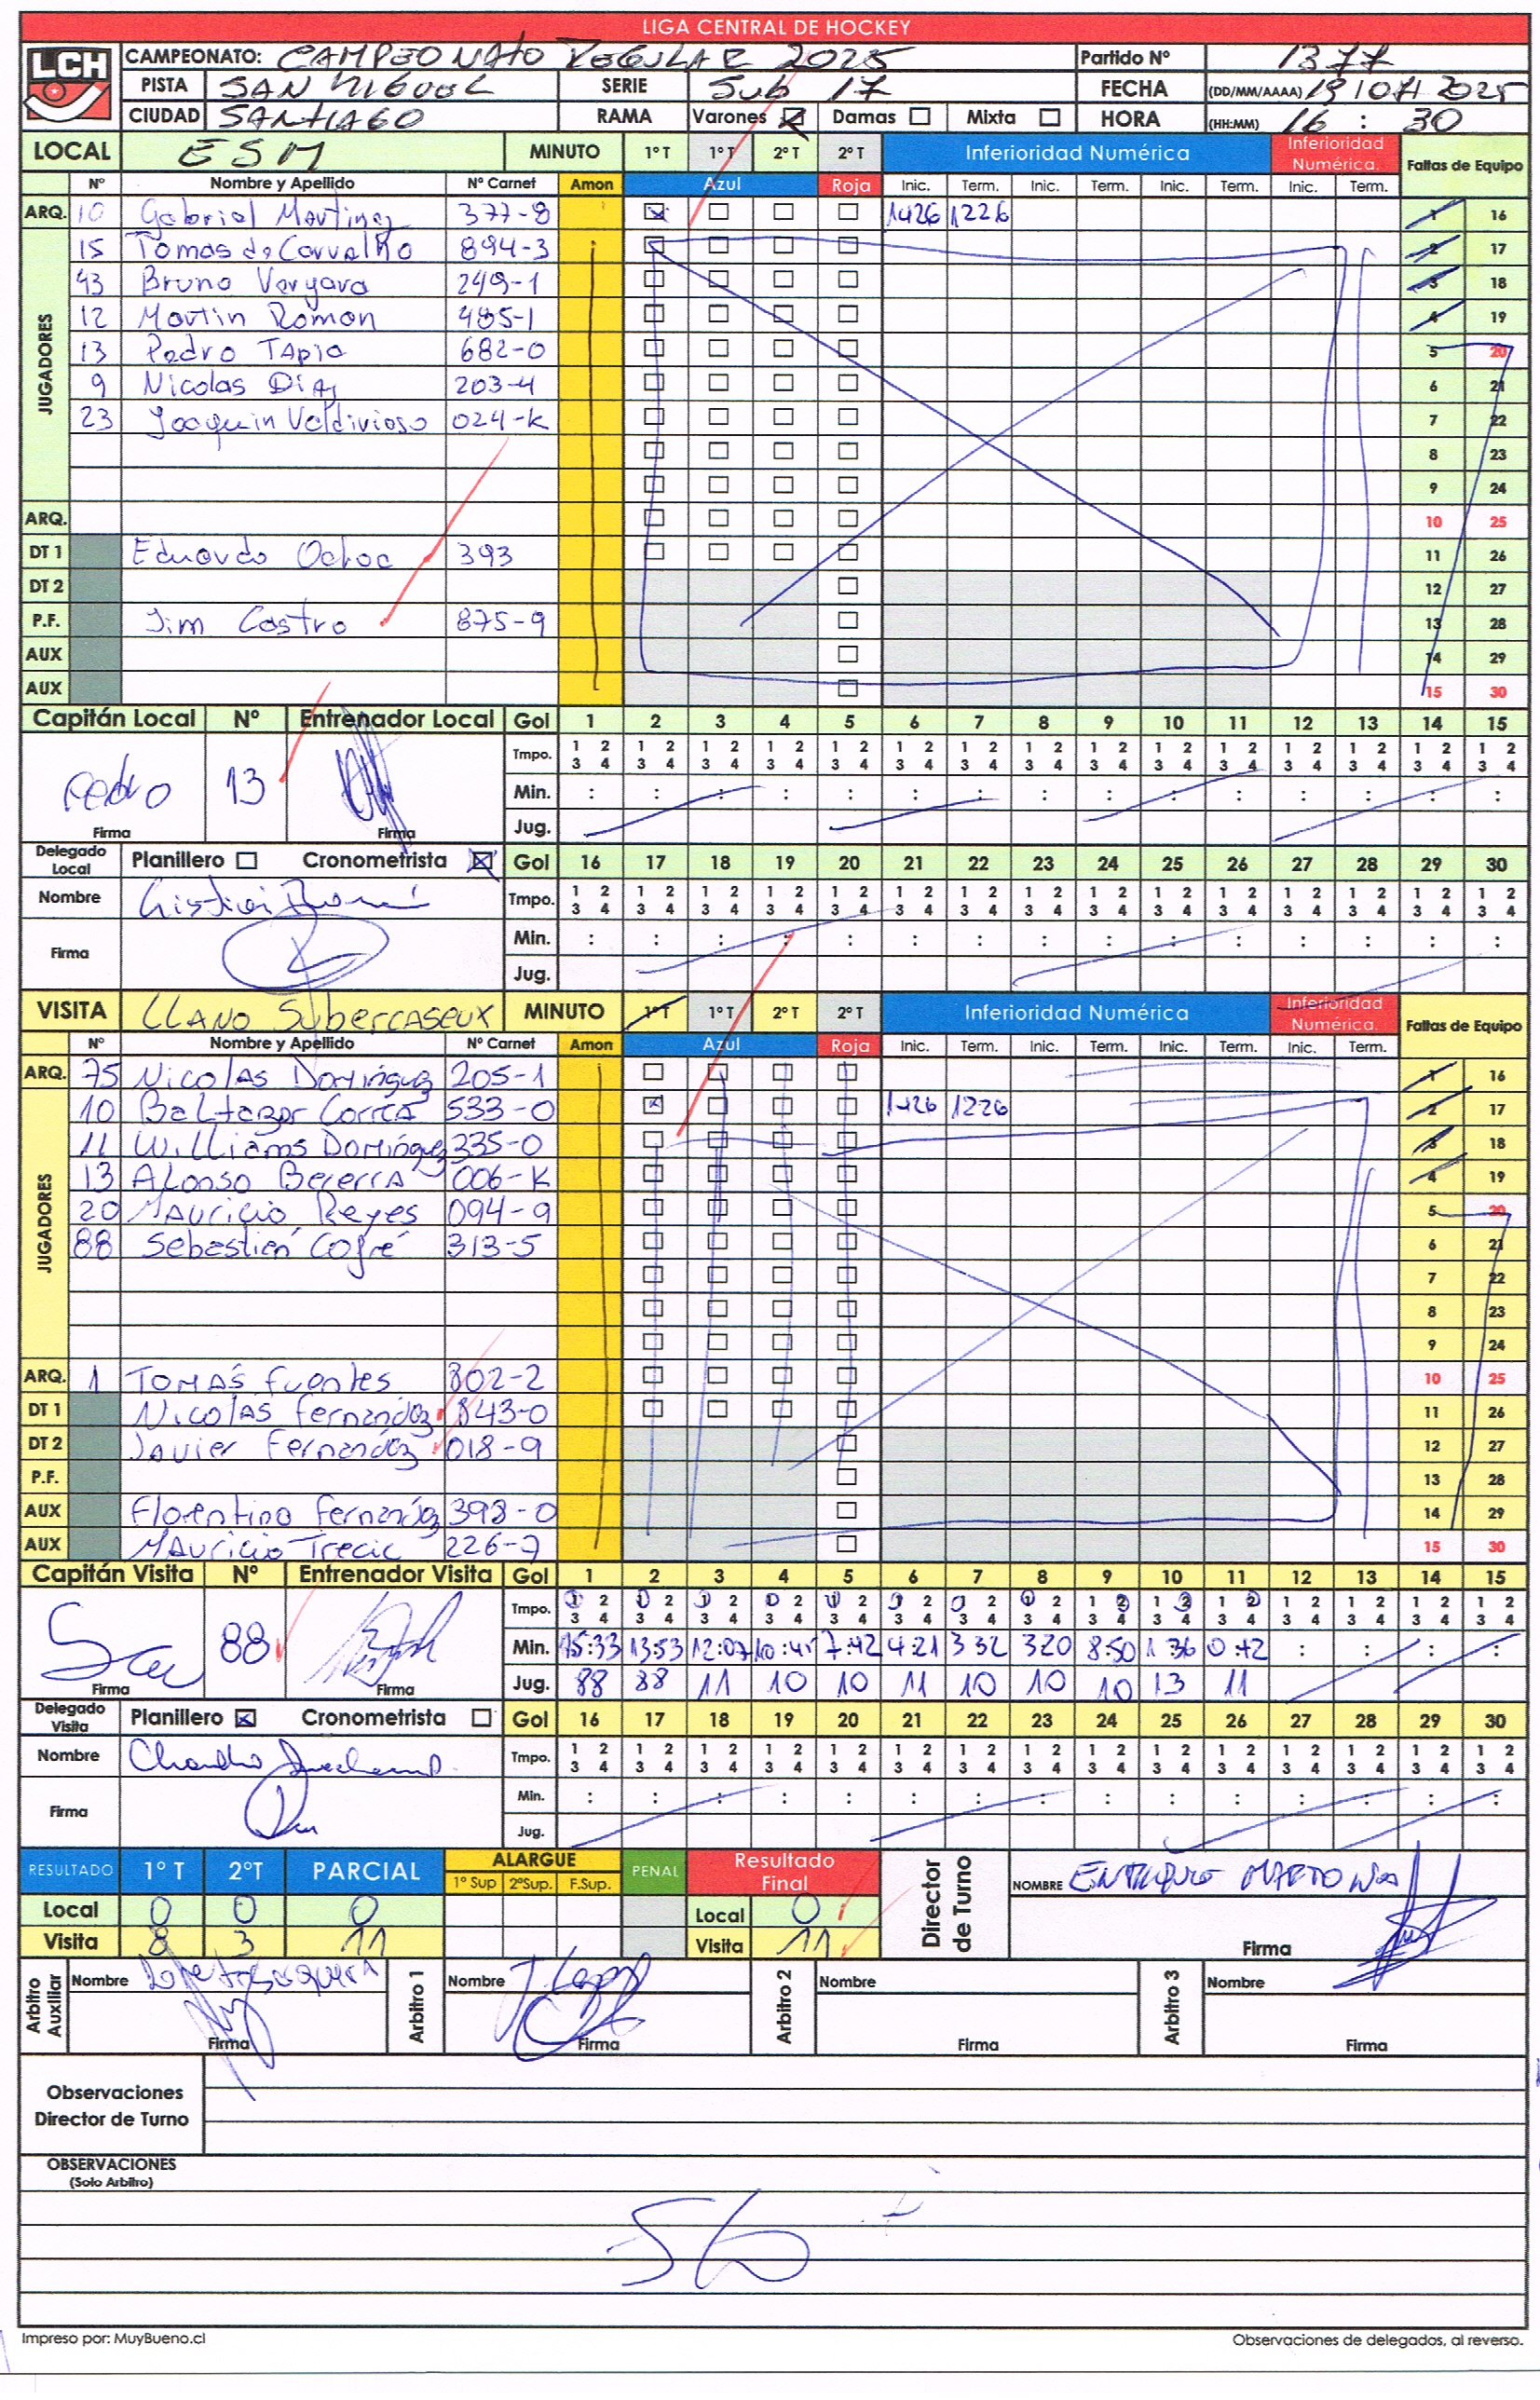 LIGA CENTRAL DE HOCKEY
LCH
CAMPEONATO: CAMPEONATO REGULAR 2025 Partido Nº 1377
PISTA SAN MIGUEL SERIE Sub 17 FECHA (DD/MM/AAAA) 2025
CIUDAD SANTIAGO RAMA Varones Damas Mixta HORA (HH:MM) 16 : 30
LOCAL ESM MINUTO 1º T 1º T 2º T 2º T Inferioridad Numérica Inferioridad Numérica. Faltas de Equipo
Nº Nombre y Apellido Nº Carnet Amon Azul Roja Inic. Term. Inic. Term. Inic. Term. Inic. Term.
ARQ. 10 Gabriel Martinez 377-8 1426 1226 1 16
JUGADORES
15 Tomas de Carvalho 894-3 2 17
43 Bruno Vergara 249-1 3 18
12 Martin Roman 485-1 4 19
13 Pedro Tapia 682-0 5 20
9 Nicolas Diaz 203-4 6 21
23 Joaquin Valdivioso 024-K 7 22
8 23
9 24
ARQ. 10 25
DT 1 Eduardo Ochoa 393 11 26
DT 2 12 27
P.F. Jim Castro 875-9 13 28
AUX 14 29
AUX 15 30
Capitán Local Nº Entrenador Local Gol 1 2 3 4 5 6 7 8 9 10 11 12 13 14 15
Tmpo. 1 2 1 2 1 2 1 2 1 2 1 2 1 2 1 2 1 2 1 2 1 2 1 2 1 2 1 2 1 2
3 4 3 4 3 4 3 4 3 4 3 4 3 4 3 4 3 4 3 4 3 4 3 4 3 4 3 4 3 4
Pedro 13 Min. : : : : : : : : : : : : : : :
Firma Firma Jug.
Delegado Local Planillero Cronometrista Gol 16 17 18 19 20 21 22 23 24 25 26 27 28 29 30
Nombre Tmpo. 1 2 1 2 1 2 1 2 1 2 1 2 1 2 1 2 1 2 1 2 1 2 1 2 1 2 1 2 1 2
3 4 3 4 3 4 3 4 3 4 3 4 3 4 3 4 3 4 3 4 3 4 3 4 3 4 3 4 3 4
Firma Min. : : : : : : : : : : : : : : :
Jug.
VISITA LLANO Subercaseux MINUTO 1º T 1º T 2º T 2º T Inferioridad Numérica Inferioridad Numérica. Faltas de Equipo
Nº Nombre y Apellido Nº Carnet Amon Azul Roja Inic. Term. Inic. Term. Inic. Term. Inic. Term.
ARQ. 75 Nicolas Domínguez 205-1 1 16
JUGADORES
10 Baltazar Correa 533-0 1426 1226 2 17
11 Williams Domínguez 335-0 3 18
13 Alonso Becerra 006-K 4 19
20 Mauricio Reyes 094-9 5 20
88 Sebastién Cofré 313-5 6 21
7 22
8 23
9 24
ARQ. 1 Tomás Fuentes 802-2 10 25
DT 1 Nicolas Fernandez 843-0 11 26
DT 2 Javier Fernandez 018-9 12 27
P.F. 13 28
AUX Florentino Fernández 398-0 14 29
AUX Mauricio Trecic 226-7 15 30
Capitán Visita Nº Entrenador Visita Gol 1 2 3 4 5 6 7 8 9 10 11 12 13 14 15
Tmpo. 1 2 1 2 1 2 1 2 1 2 1 2 1 2 1 2 1 2 1 2 1 2 1 2 1 2 1 2 1 2
3 4 3 4 3 4 3 4 3 4 3 4 3 4 3 4 3 4 3 4 3 4 3 4 3 4 3 4 3 4
88 Min. 15:33 13:53 12:07 10:45 7:42 4:21 3 32 3 20 8:50 1 36 0:42 : : : :
Firma Firma Jug. 88 88 11 10 10 11 10 10 10 13 11
Delegado Visita Planillero Cronometrista Gol 16 17 18 19 20 21 22 23 24 25 26 27 28 29 30
Nombre Tmpo. 1 2 1 2 1 2 1 2 1 2 1 2 1 2 1 2 1 2 1 2 1 2 1 2 1 2 1 2 1 2
3 4 3 4 3 4 3 4 3 4 3 4 3 4 3 4 3 4 3 4 3 4 3 4 3 4 3 4 3 4
Firma Min. : : : : : : : : : : : : : : :
Jug.
RESULTADO 1º T 2ºT PARCIAL ALARGUE PENAL Resultado Final Director de Turno NOMBRE
1º Sup 2ºSup. F.Sup.
Local 0 0 0 Local 0
Visita 8 3 11 Visita 11 Firma
Arbitro Auxiliar Nombre Arbitro 1 Nombre Arbitro 2 Nombre Arbitro 3 Nombre
Firma Firma Firma Firma
Observaciones
Director de Turno
OBSERVACIONES
(Solo Arbitro)
Impreso por: MuyBueno.cl Observaciones de delegados, al reverso.